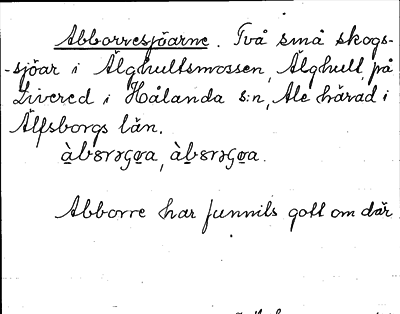 Abborresjöarne. Två små skogs-
-sjöar i Älghultsmossen, Älghult på
Livered i Hålanda s:n, Ale härad i
Älfsborgs län.
Abborre har funnits gott om där